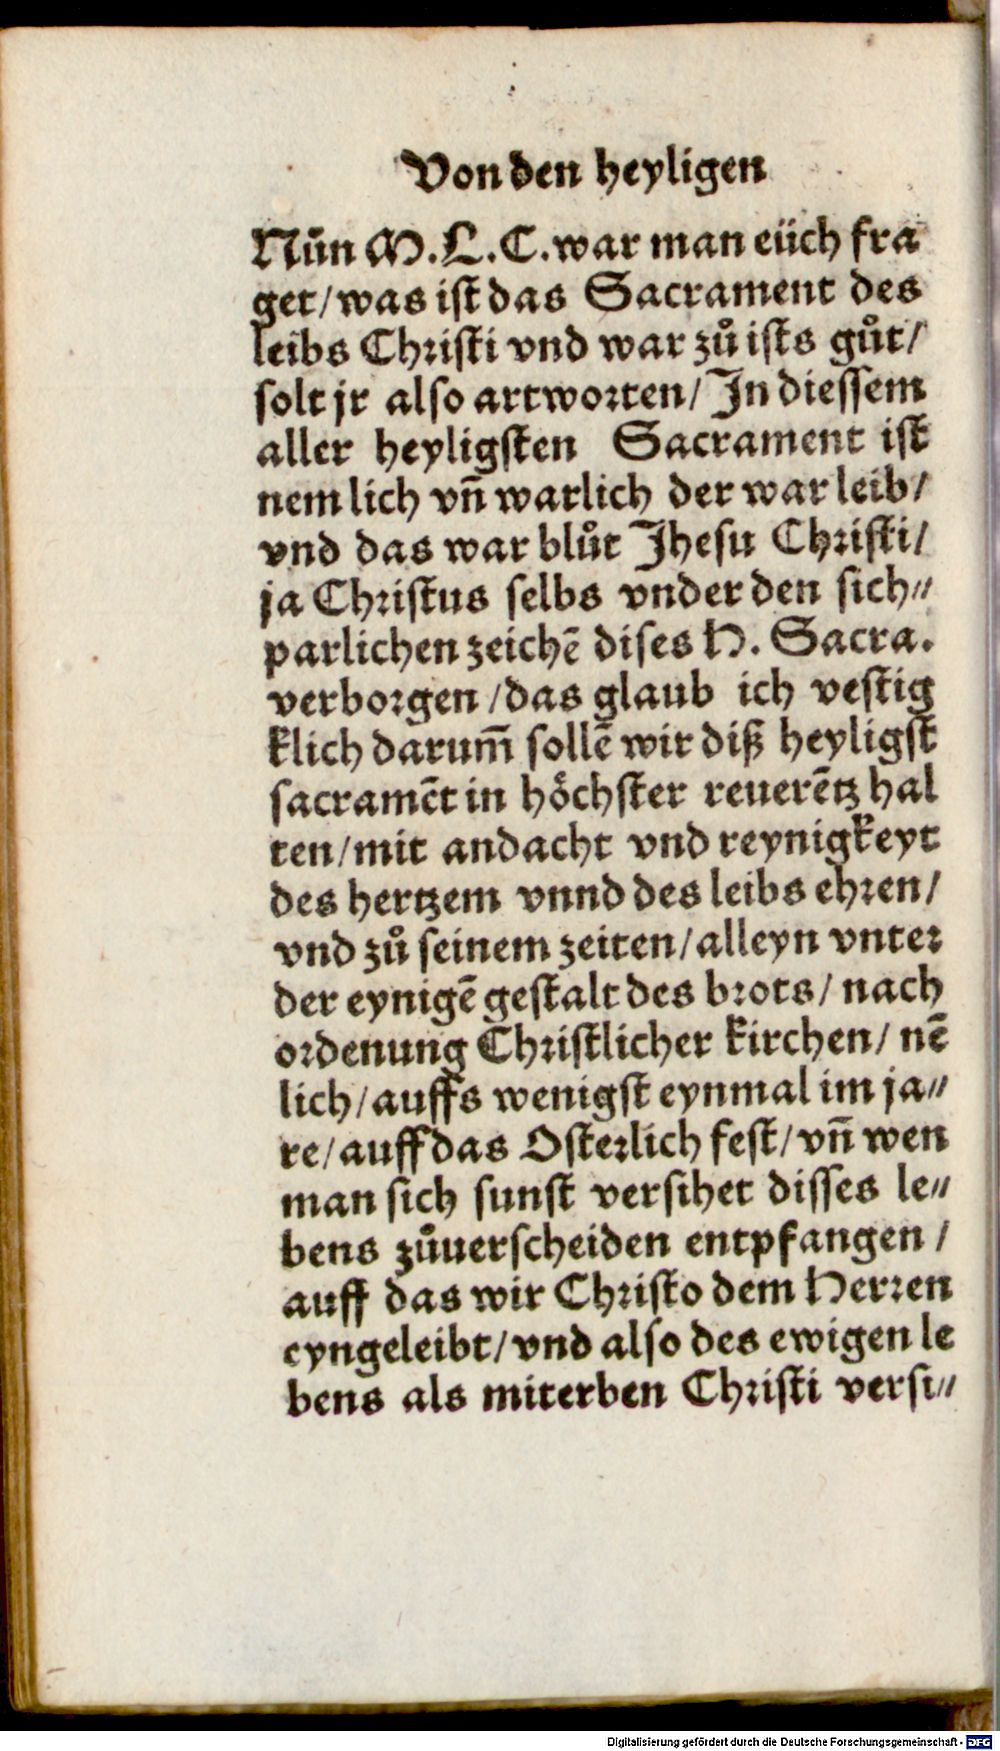 Von den heyligen
Nůn M.L.C. war man eüch fra
get/was ist das Sacrament des
leibs Christi vnd war zů ists gůt/
solt jr also artworten/ In diessem
aller heyligsten Sacrament ist
nemlich vñ warlich der war leib/
vnd das war blůt Jhesu Christi/
ja Christus selbs vnder den sich⸗
parlichen zeichē dises H. Sacra.
verborgen/das glaub ich vestig
klich darum̄ sollē wir diß heyligst
sacramēt in höchster reuerētz hal
ten/mit andacht vnd reynigkeyt
des hertzem vnnd des leibs ehren/
vnd zů seinem zeiten/alleyn vnter
der eynigē gestalt des brots/nach
ordenung Christlicher kirchen/ nē
lich/auffs wenigst eynmal im ja⸗
re/auff das Osterlich fest/vñ wen
man sich sunst versihet disses le⸗
bens zůuerscheiden entpfangen/
auff das wir Christo dem Herren
eyngeleibt/vnd also des ewigen le
bens als miterben Christi versi⸗
Digitalisierung gefördert durch die Deutsche Forschungsgemeinschaft - DFG